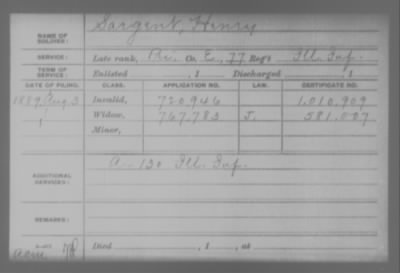 NAME OF SOLDIER: Sargent, Henry
SERVICE: Late rank, Pri. Co. E, 77 Reg't Ill. Inf.
TERM OF SERVICE: Enlisted , 1 Discharged , 1
DATE OF FILING. CLASS. APPLICATION NO. LAW. CERTIFICATE NO.
1889 Aug 3 Invalid, 720,946 1,010,909
Widow, 767,783 J. 581,007
Minor,
ADDITIONAL SERVICES: A-130 Ill. Inf.
REMARKS:
Died , 1 , at